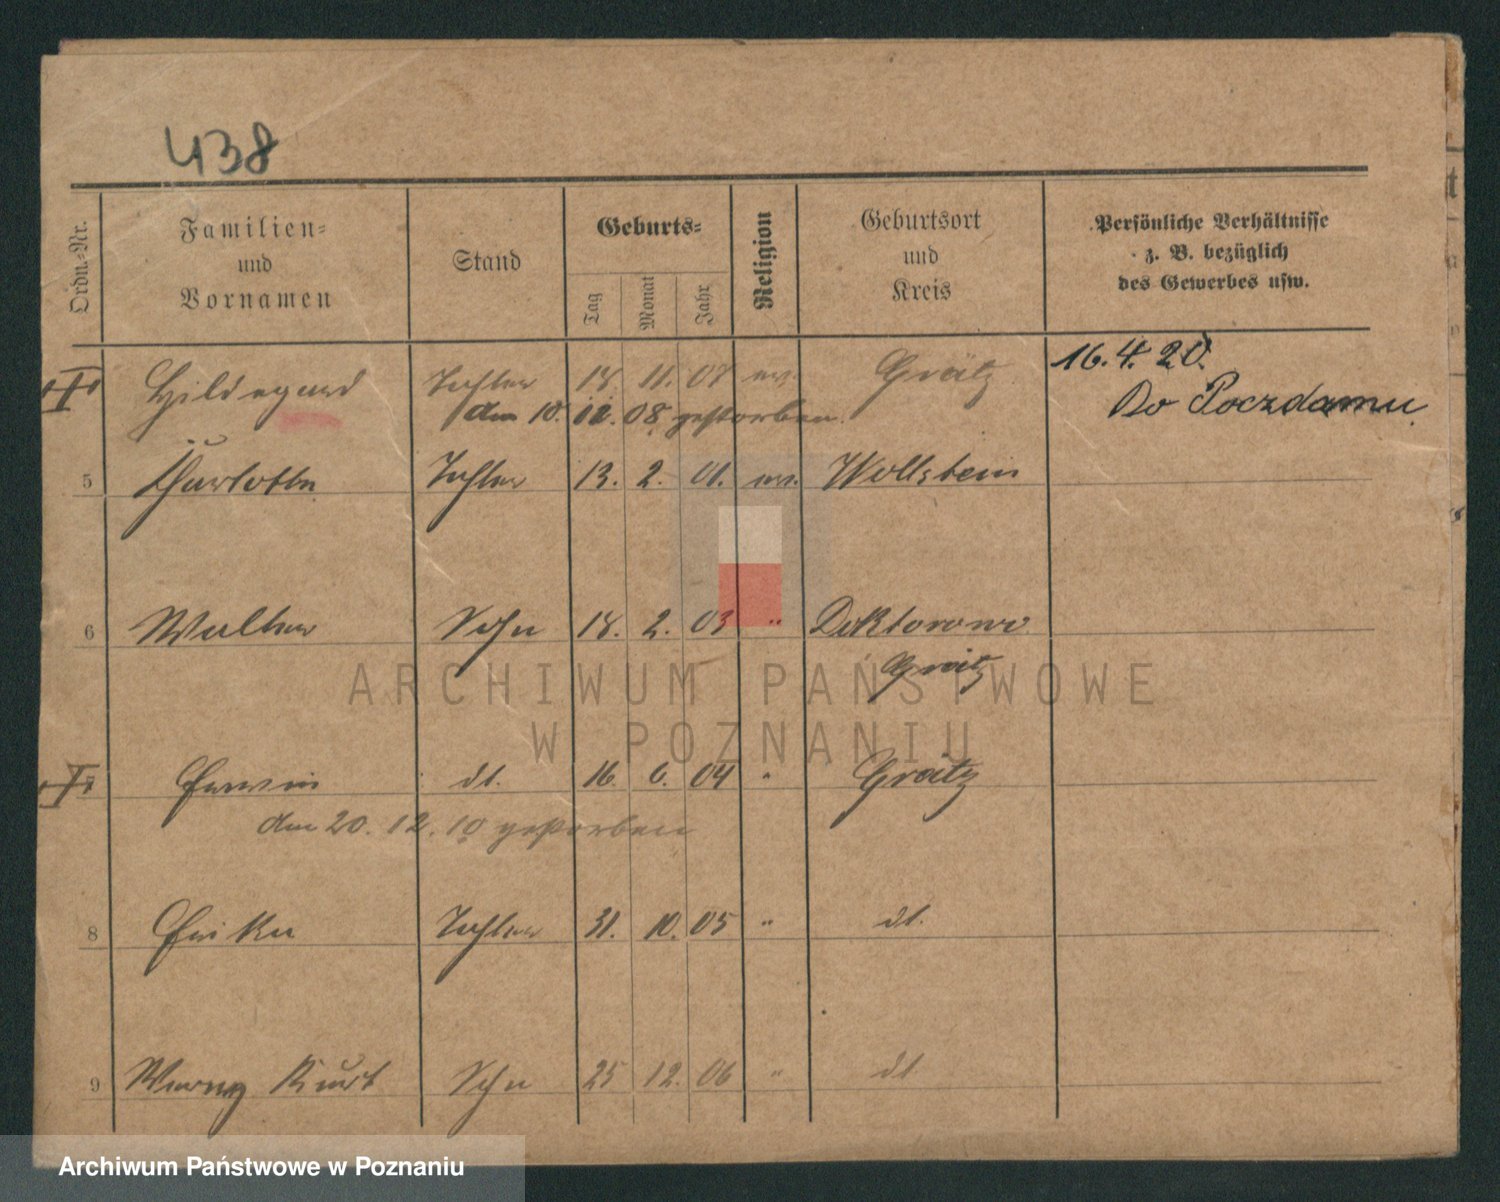 438
Ordn.-Nr. Familien- und Vornamen Stand Geburts- Tag Monat Jahr Religion Geburtsort und Kreis Persönliche Verhältnisse z. B. bezüglich des Gewerbes usw.
Hildegard Tochter 18. 11. 07 ev. Grätz 16. 4. 20.
den 10. 12. 08 gestorben. Do Poczdamu
5 Charlotte Tochter 13. 2. 01. ev. Wollstein
6 Walter Sohn 18. 2. 03 " Doktorowo
Grätz
Erwin dt. 16. 6. 04 " Grätz
den 20. 12. 10 gestorben
8 Erika Tochter 31. 10. 05 " dt.
9 Kurt Sohn 25 12. 06 " dt
ARCHIWUM PAŃSTWOWE
W POZNANIU
Archiwum Państwowe w Poznaniu